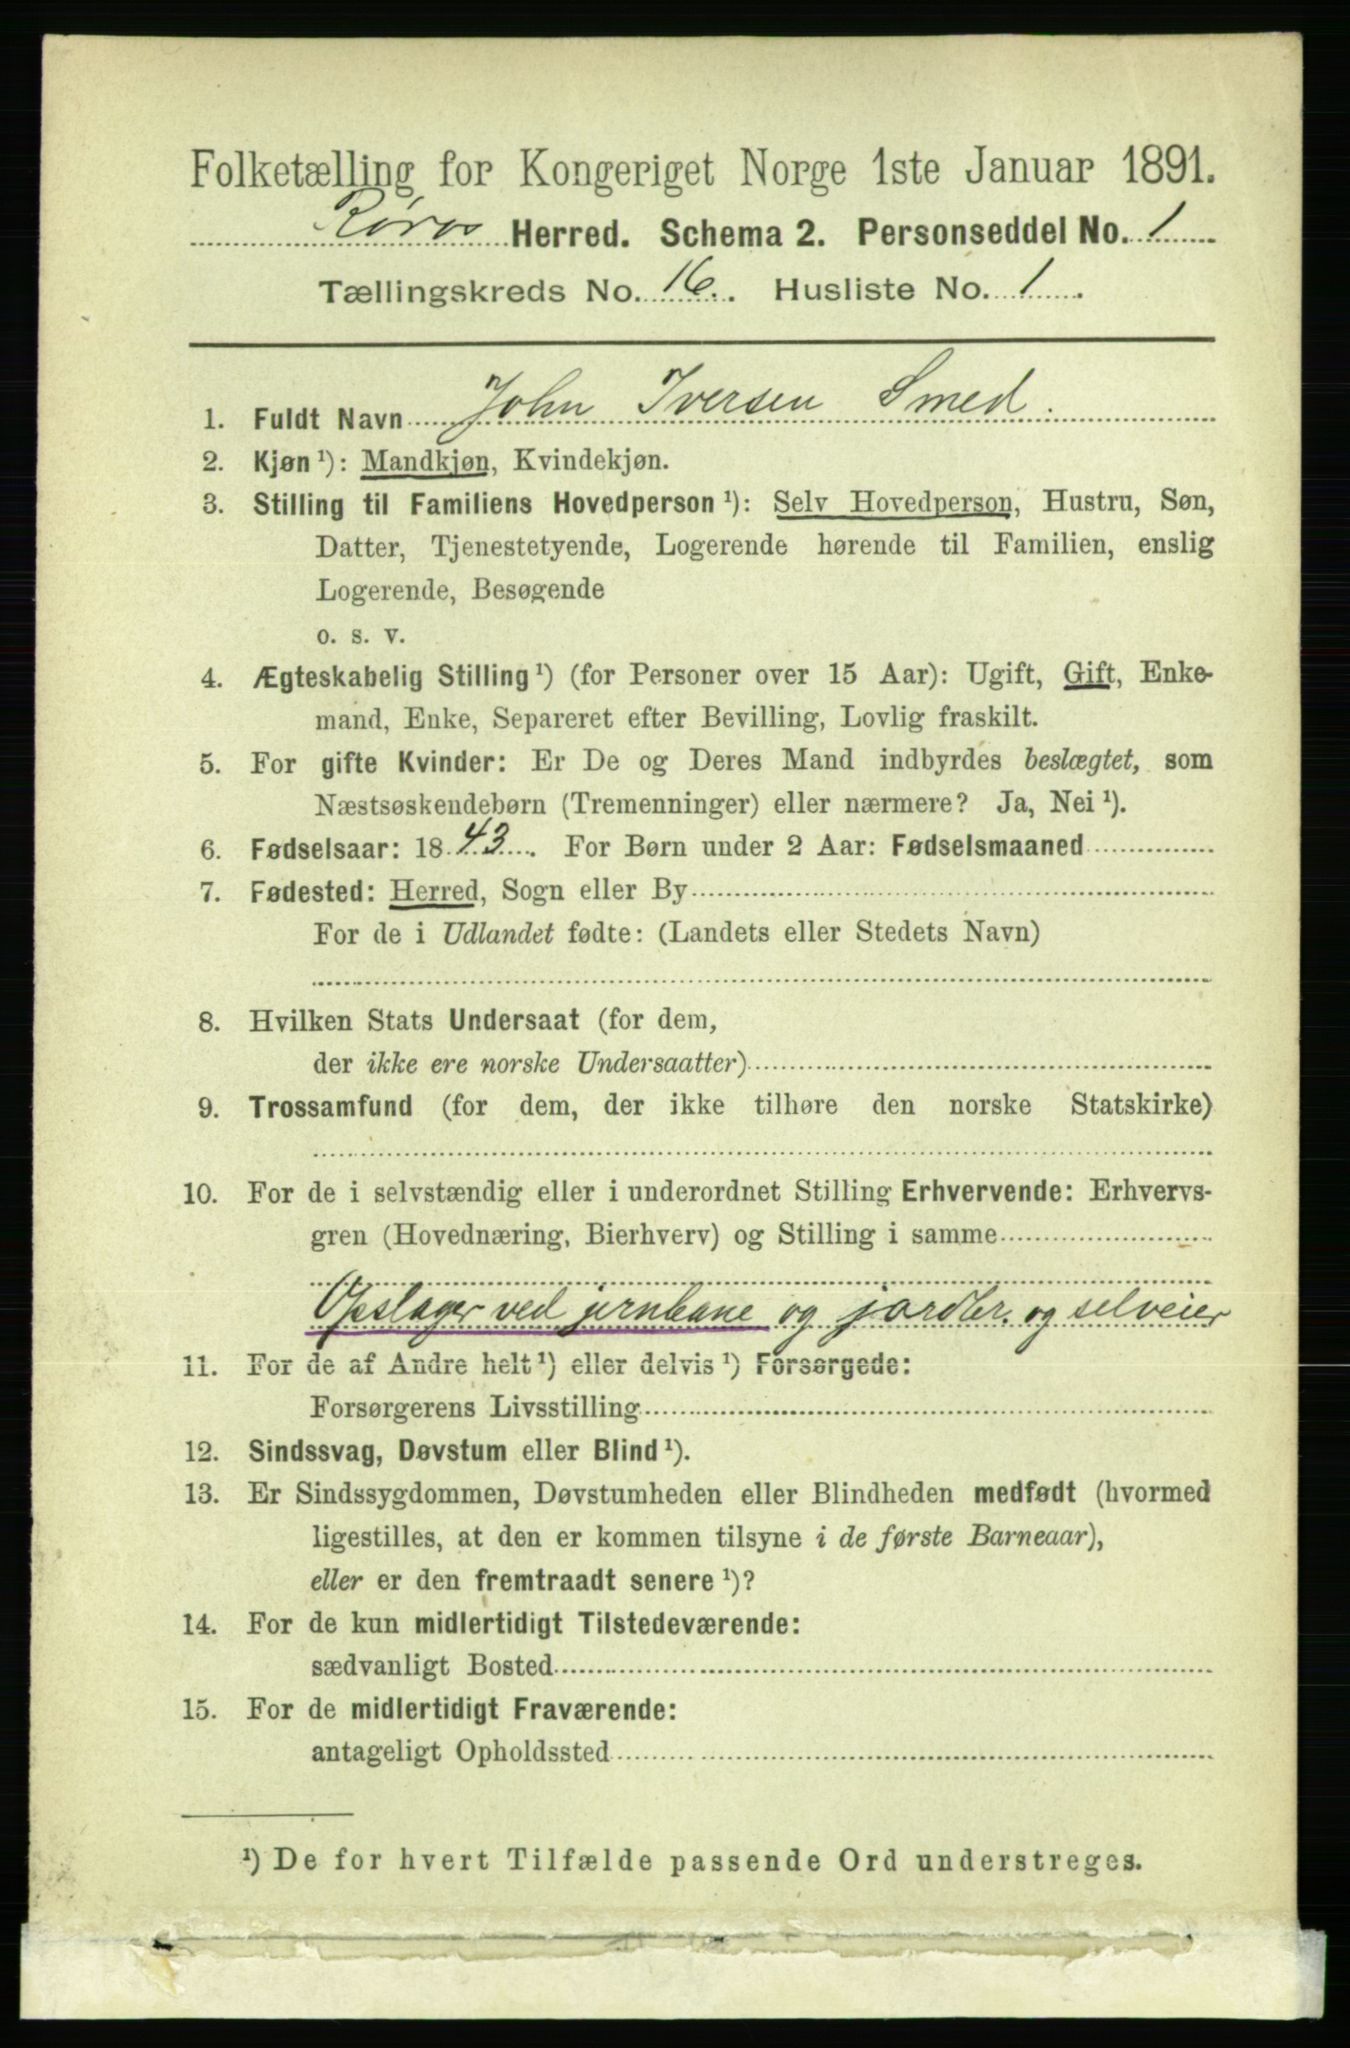 Folketælling for Kongeriget Norge 1ste Januar 1891.
Røros Herred. Schema 2. Personseddel No. 1
Tællingskreds No. 16. Husliste No. 1.
1. Fuldt Navn John Iversen Smed.
2. Kjøn ¹): Mandkjøn, Kvindekjøn.
3. Stilling til Familiens Hovedperson ¹): Selv Hovedperson, Hustru, Søn,
Datter, Tjenestetyende, Logerende hørende til Familien, enslig
Logerende, Besøgende
o. s. v.
4. Ægteskabelig Stilling ¹) (for Personer over 15 Aar): Ugift, Gift, Enke-
mand, Enke, Separeret efter Bevilling, Lovlig fraskilt.
5. For gifte Kvinder: Er De og Deres Mand indbyrdes beslægtet, som
Næstsøskendebørn (Tremenninger) eller nærmere? Ja, Nei ¹).
6. Fødselsaar: 1843. For Børn under 2 Aar: Fødselsmaaned
7. Fødested: Herred, Sogn eller By
For de i Udlandet fødte: (Landets eller Stedets Navn)
8. Hvilken Stats Undersaat (for dem,
der ikke ere norske Undersaatter)
9. Trossamfund (for dem, der ikke tilhøre den norske Statskirke)
10. For de i selvstændig eller i underordnet Stilling Erhvervende: Erhvervs-
gren (Hovednæring, Bierhverv) og Stilling i samme
ved jernbane og jordbr. og selveier
11. For de af Andre helt ¹) eller delvis ¹) Forsørgede:
Forsørgerens Livsstilling
12. Sindssvag, Døvstum eller Blind ¹).
13. Er Sindssygdommen, Døvstumheden eller Blindheden medfødt (hvormed
ligestilles, at den er kommen tilsyne i de første Barneaar),
eller er den fremtraadt senere ¹)?
14. For de kun midlertidigt Tilstedeværende:
sædvanligt Bosted
15. For de midlertidigt Fraværende:
antageligt Opholdssted
¹) De for hvert Tilfælde passende Ord understreges.